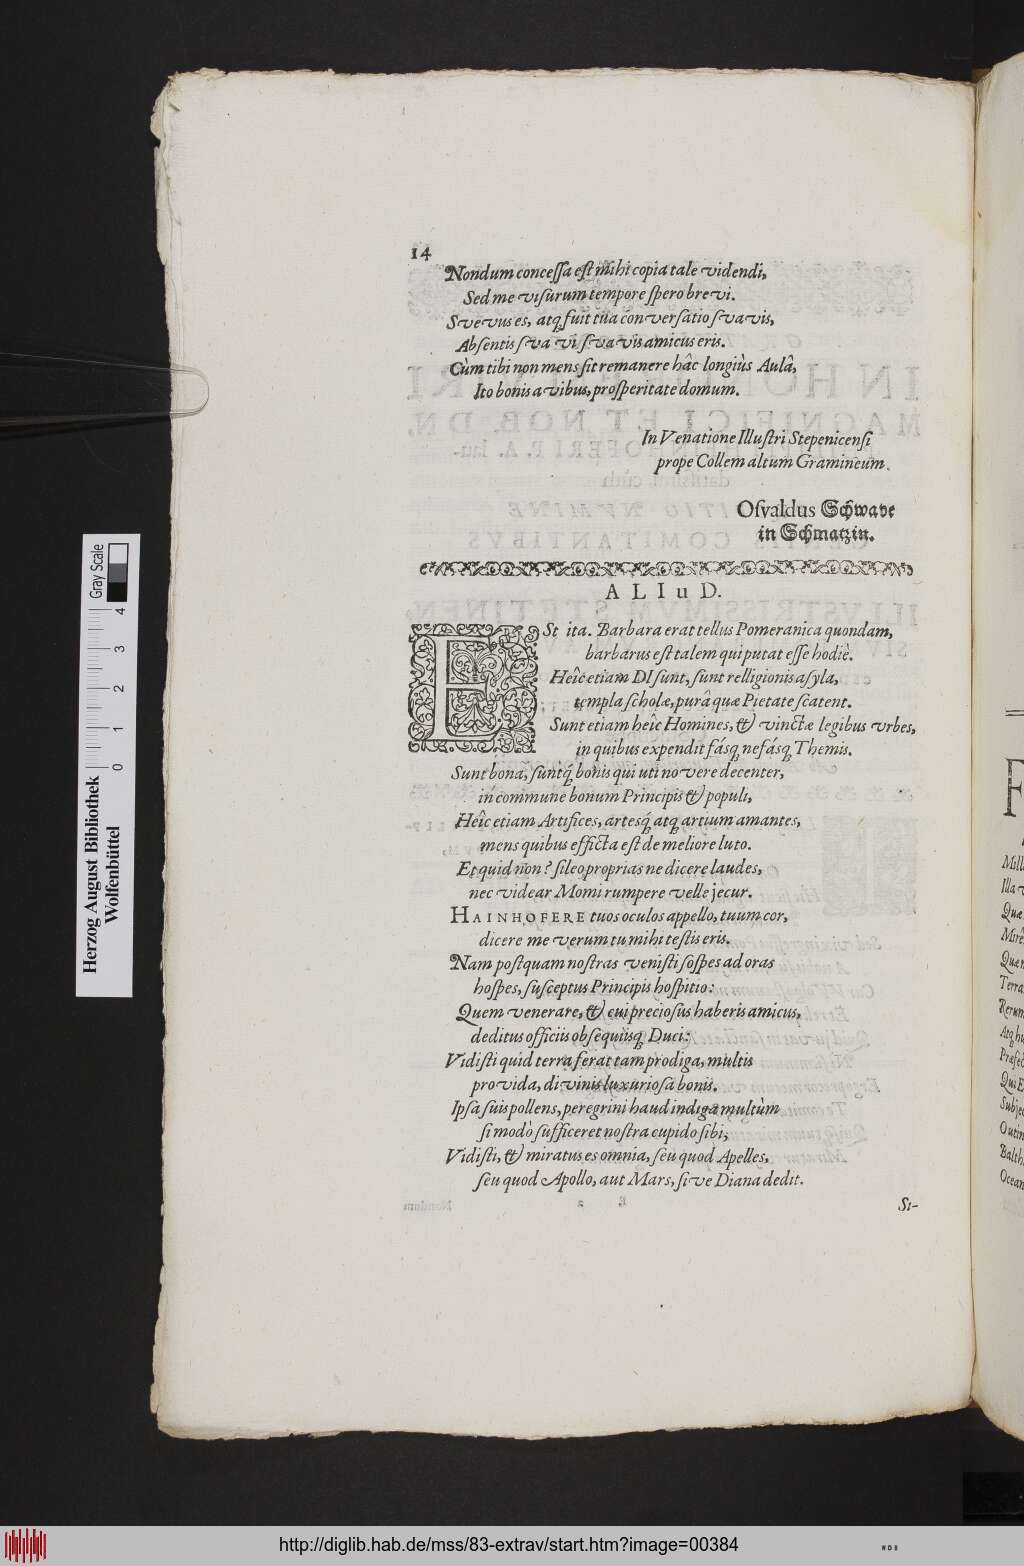 14
Nondum concessa est mihi copia tale videndi,
Sed me visurum tempore spero brevi.
Svevus es, atq; fuit tua conversatio svavis,
Absentis sva vi svavis amicus eris.
Cùm tibi non mens sit remanere hâc longiùs Aulâ,
Ito bonis avibus, prosperitate domum.
In Venatione Illustri Stepenicensi
prope Collem altum Gramineum.
Osvaldus Schwave
in Schmatzin.
ALIuD.
ESt ita. Barbara erat tellus Pomeranica quondam,
barbarus est talem qui putat esse hodiè.
Heîc etiam DI sunt, sunt relligionis asyla,
templa scholæ, purâ quæ Pietate scatent.
Sunt etiam heîc Homines, & vinctæ legibus vrbes,
in quibus expendit fásq; nefásq; Themis.
Sunt bona, suntq́; bonis qui uti novere decenter,
in commune bonum Principis & populi,
Heîc etiam Artifices, artesq́; atq; artium amantes,
mens quibus efficta est de meliore luto.
Et quid non? sileo proprias ne dicere laudes,
nec videar Momi rumpere velle jecur.
HAINHOFERE tuos oculos appello, tuum cor,
dicere me verum tu mihi testis eris.
Nam postquam nostras venisti sospes ad oras
hospes, susceptus Principis hospitio:
Quem venerare, & cui preciosus haberis amicus,
deditus officiis obsequiisq; Duci:
Vidisti quid terra ferat tam prodiga, multis
provida, divinis luxuriosa bonis.
Ipsa suis pollens, peregrini haud indiga multùm
si modò sufficeret nostra cupido sibi;
Vidisti, & miratus es omnia, seu quod Apelles,
seu quod Apollo, aut Mars, sive Diana dedit.
Si-
Herzog August Bibliothek
Wolfenbüttel
Gray Scale
0 1 2 3 4
Mill
Illa v
Quæ
Mirê
Quæn
Terra
Rerum
Atq; hu
Præfec
Qui E
Subjec
Outin
Balth
Ocean
http://diglib.hab.de/mss/83-extrav/start.htm?image=00384